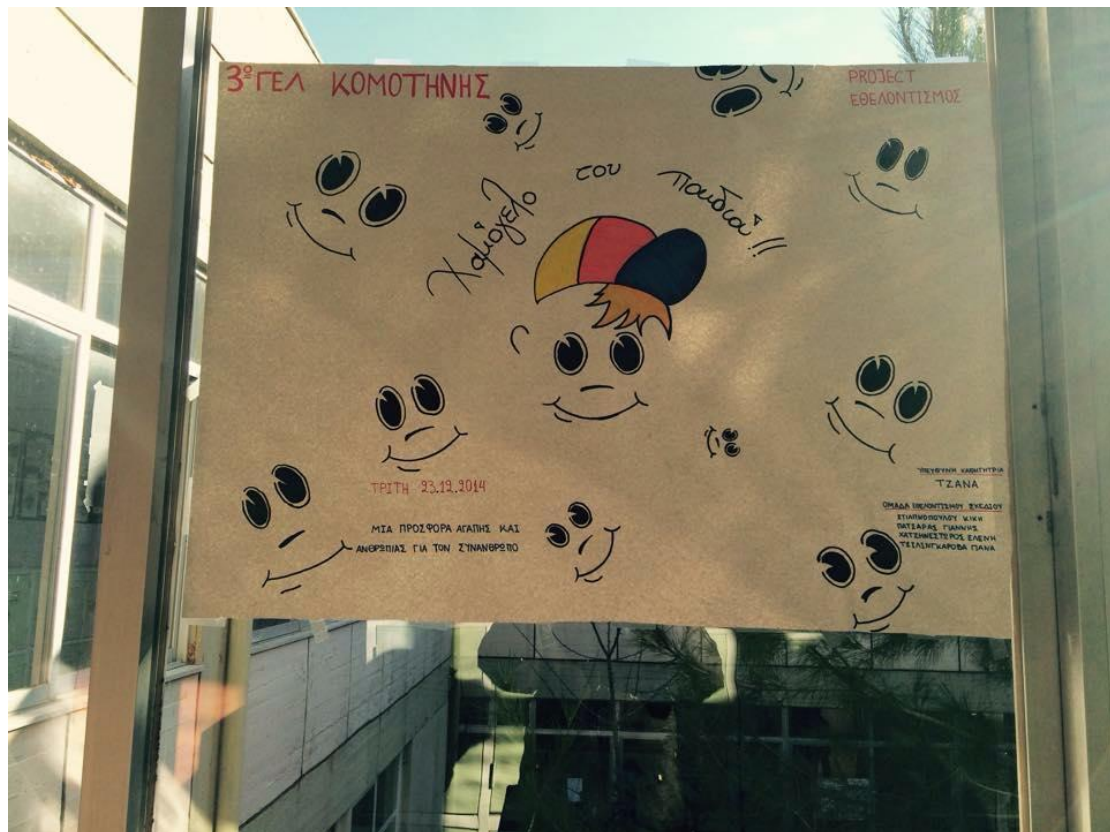 3º ΓΕΛ ΚΟΜΟΤΗΝΗΣ
PROJECT
ΕΘΕΛΟΝΤΙΣΜΟΣ
Χαμόγελο του παιδιού!!
ΤΡΙΤΗ 23.12.2014
ΜΙΑ ΠΡΟΣΦΟΡΑ ΑΓΑΠΗΣ ΚΑΙ
ΑΝΘΡΩΠΙΑΣ ΓΙΑ ΤΟΝ ΣΥΝΑΝΘΡΩΠΟ
ΥΠΕΥΘΥΝΗ ΚΑΘΗΓΗΤΡΙΑ
ΤΖΑΝΑ
ΟΜΑΔΑ ΕΘΕΛΟΝΤΙΣΜΟΥ ΣΧΕΔΙΟΥ
ΚΙΚΗ
ΠΑΤΣΑΡΑΣ ΓΙΑΝΝΗΣ
ΧΑΤΖΗΝΕΣΤΟΡΟΣ ΕΛΕΝΗ
ΓΙΑΝΑ